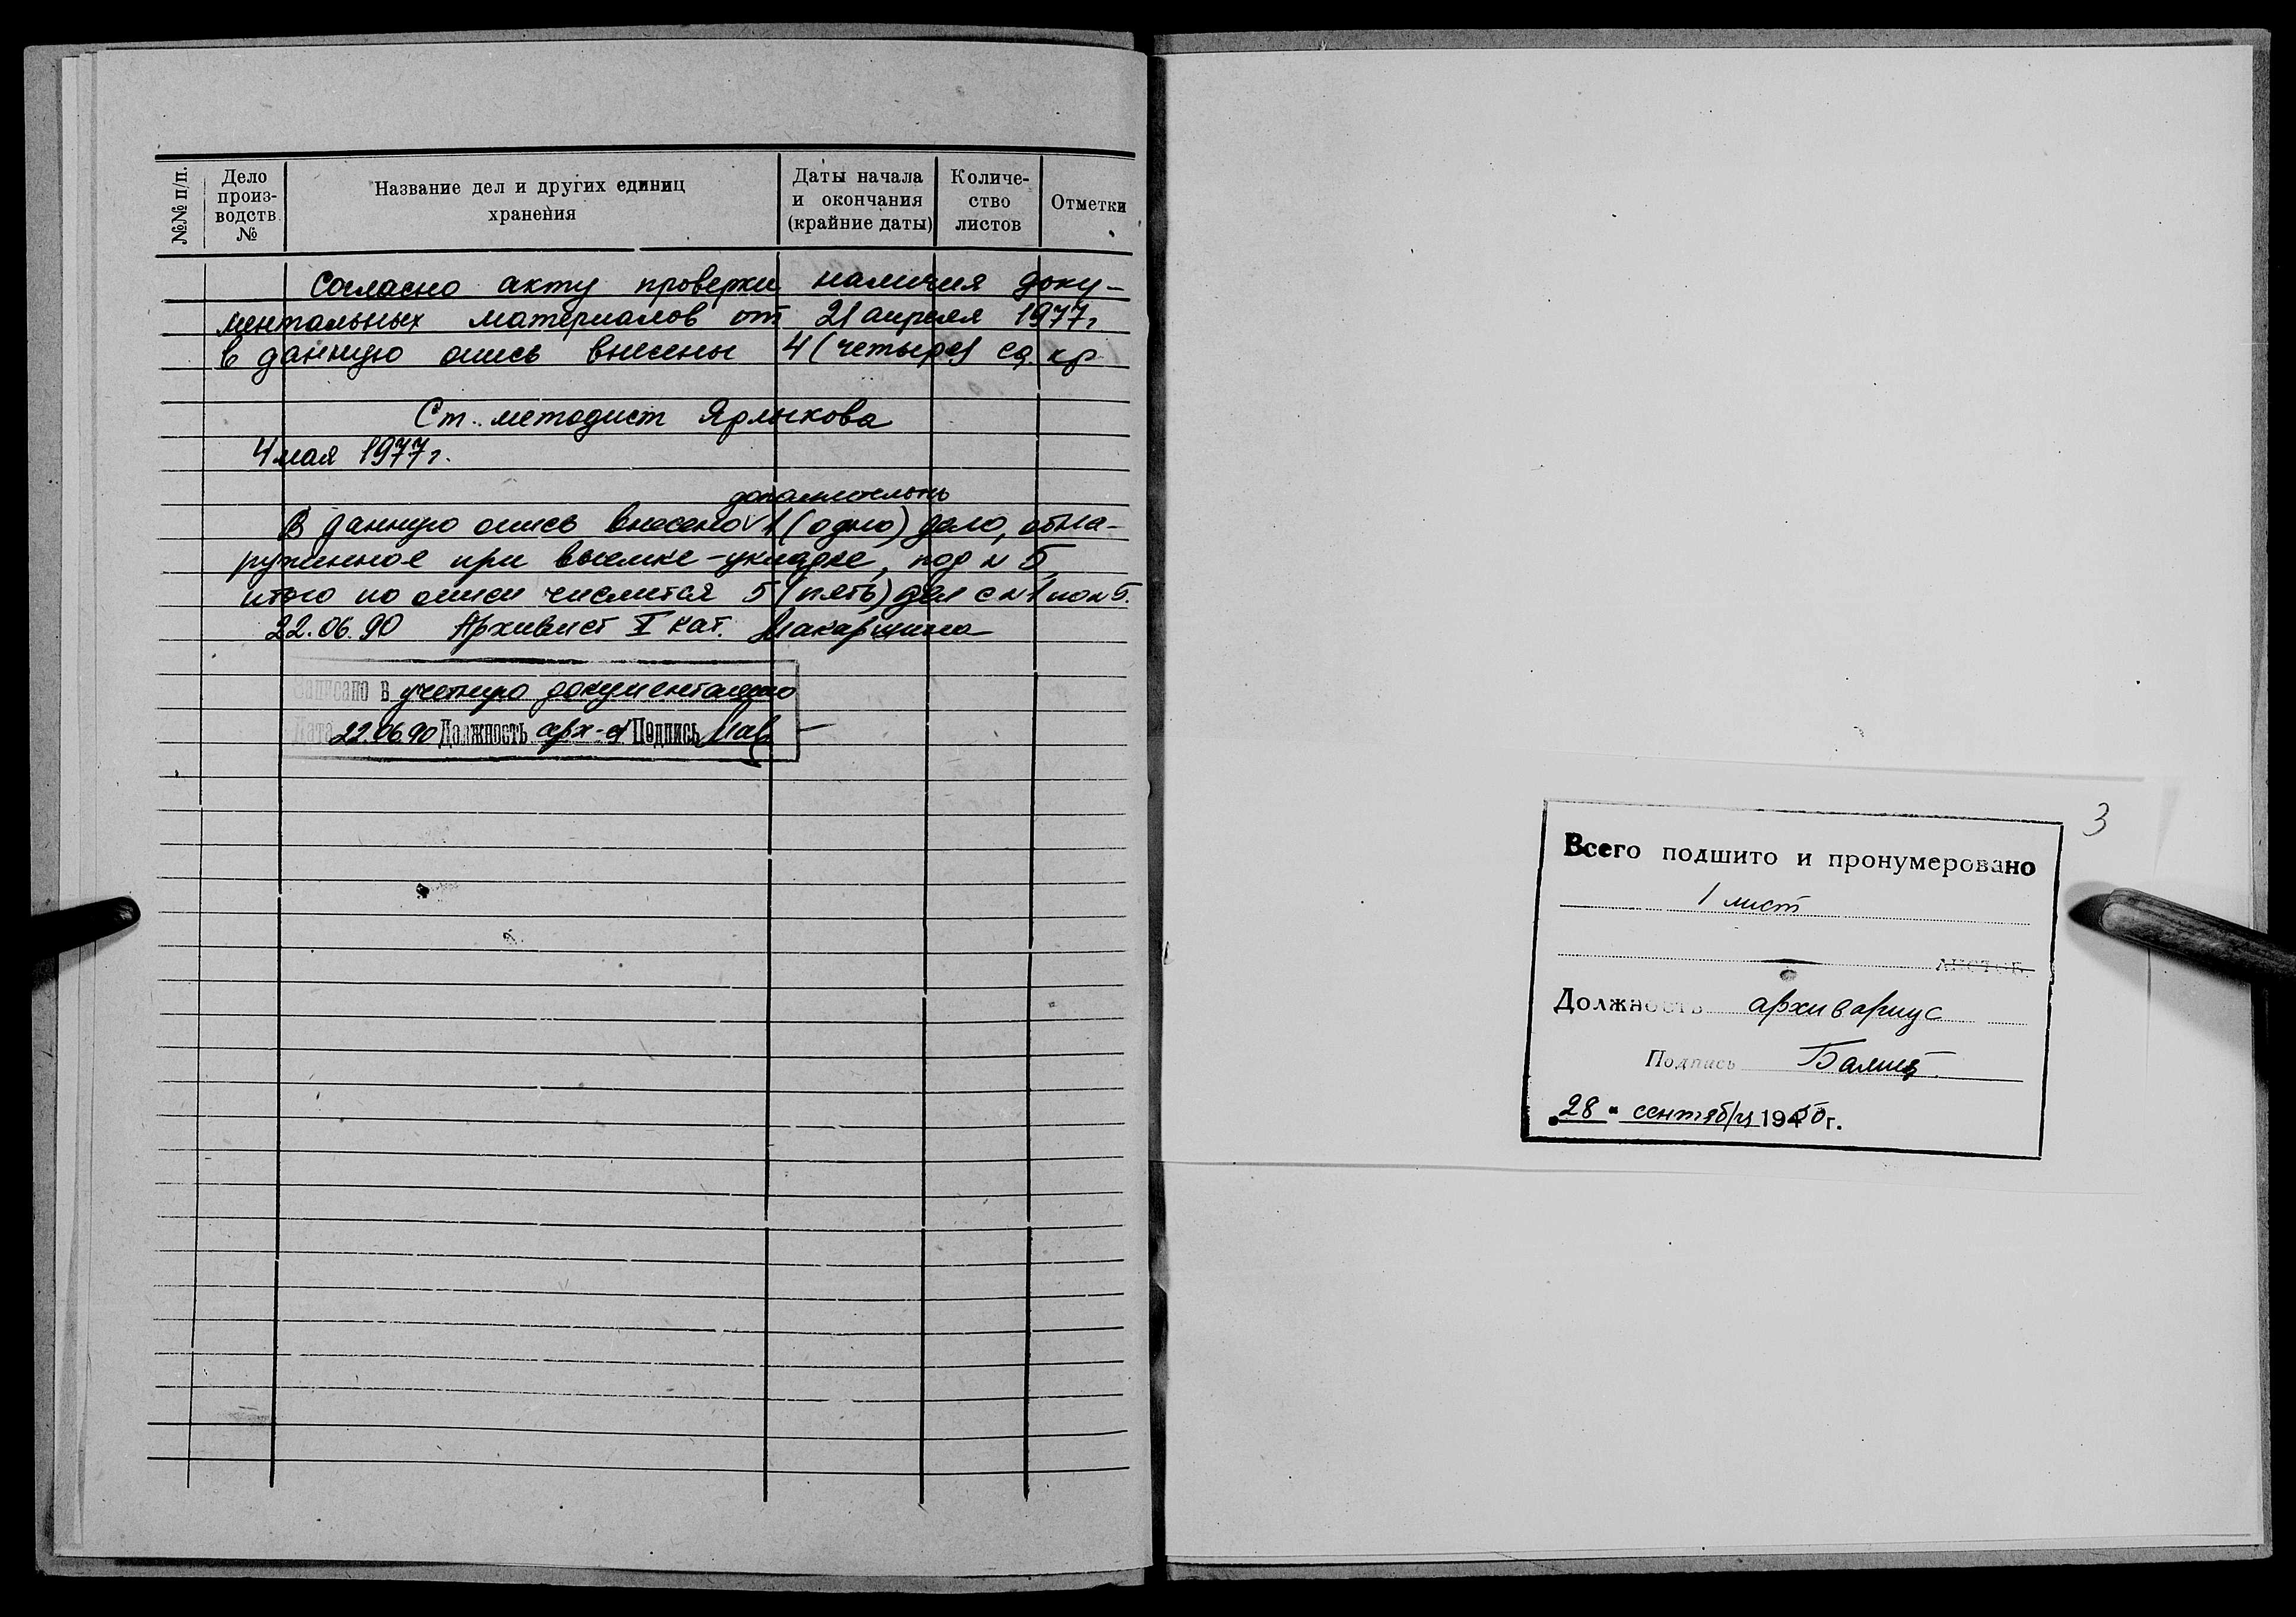 №№ п/п.
Дело
произ-
водств
№
Название дел и других единиц
хранения
Даты начала
и окончания
(крайние даты)
Количе-
ство
листов
Отметки
Согласно акту проверки наличия доку-
ментальных материалов от 21 апреля 1977г
в данную опись внесены 4 (четыре) ед. хр
Ст. методист Ярлыкова
4 мая 1977г.
дополнительно
В данную опись внесено √ 1 (одно) дело, обна-
руженное при выемке-укладке, под № 5,
итого по описи числится 5 (пять) дел с №1 по №5.
22.06.90 Архивист II кат. Макаршина
Записано в учетную документацию
Дата 22.06.90 Должность арх-т Подпись Мак
3
Всего подшито и пронумеровано
1 лист
листов
Должность архивариус
Подпись
„28" сентября 1950г.